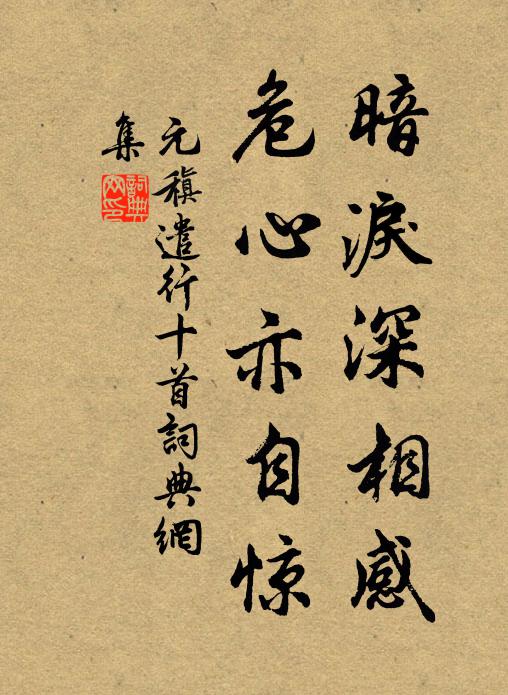 暗淚深相感
危心亦自惊
元稹遣行十首詞典網
集
詞典
网印